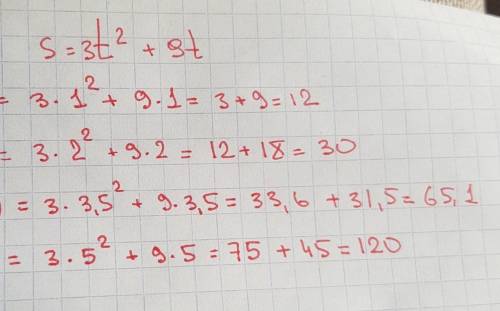 S = 3t² + 9t
= 3·1² + 9·1 = 3+9 = 12
= 3·2² + 9·2 = 12+18 = 30
) = 3·3,5² + 9·3,5 = 33,6 + 31,5 = 65,1
= 3·5² + 9·5 = 75 + 45 = 120